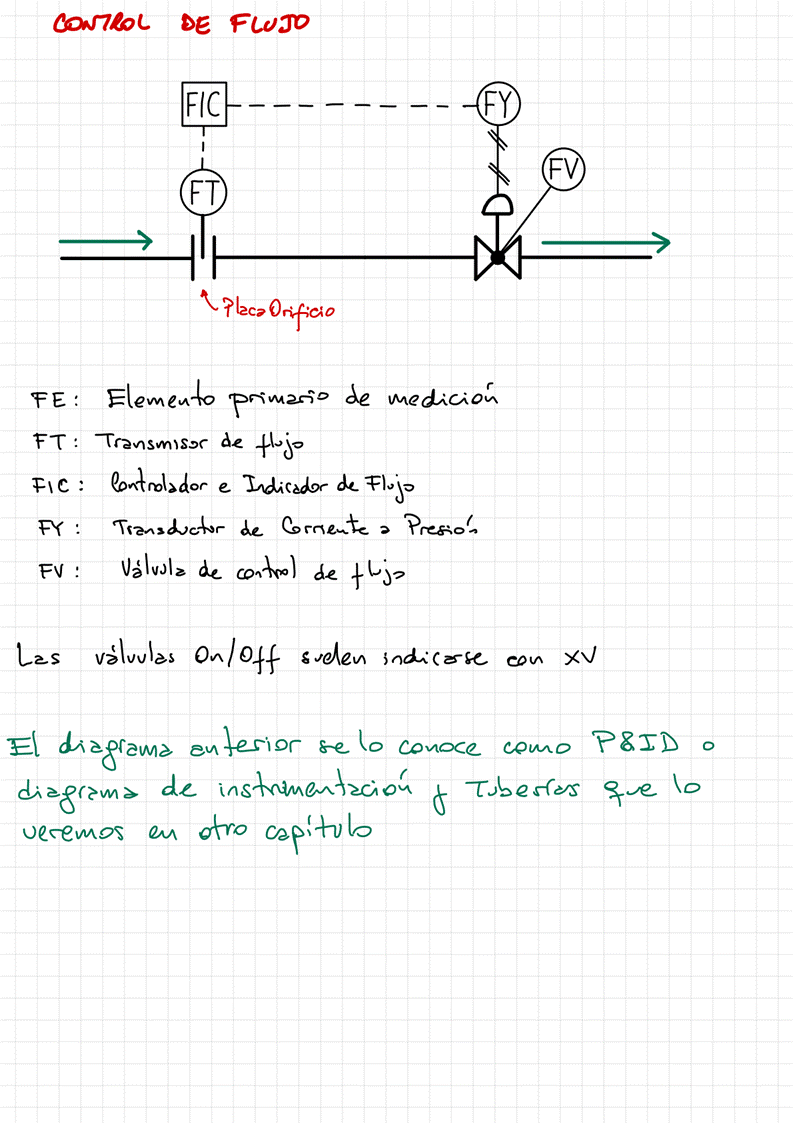 CONTROL DE FLUJO
FIC
FY
FT
FV
Placa Orificio
FE: Elemento primario de medición
FT: Transmisor de flujo
FIC: Controlador e Indicador de Flujo
FY: Transductor de Corriente a Presión
FV: Válvula de control de flujo
Las válvulas On/Off suelen indicarse con XV
El diagrama anterior se lo conoce como P&ID o
diagrama de instrumentación y Tuberías que lo
veremos en otro capítulo